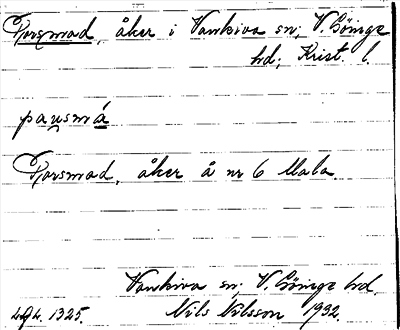 åker i Vankiva sn, V. Göinge
hd, Krist. l.
pausmá
åker å nr 6 Mala
Vankiva sn, V. Göinge hd.
1325.
Nils Nilsson 1932.